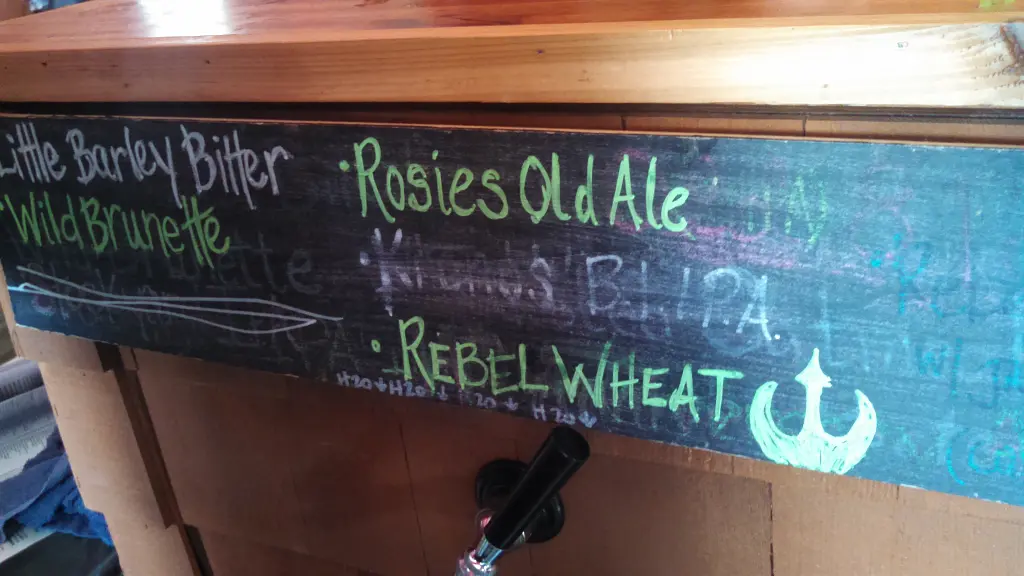 Little Barley Bitter
Wild Brunette
• Rosies Old Ale
B.I.P.A.
• REBEL WHEAT
H20 ↓ H20 ↓ H20 ↓ H20 ↓